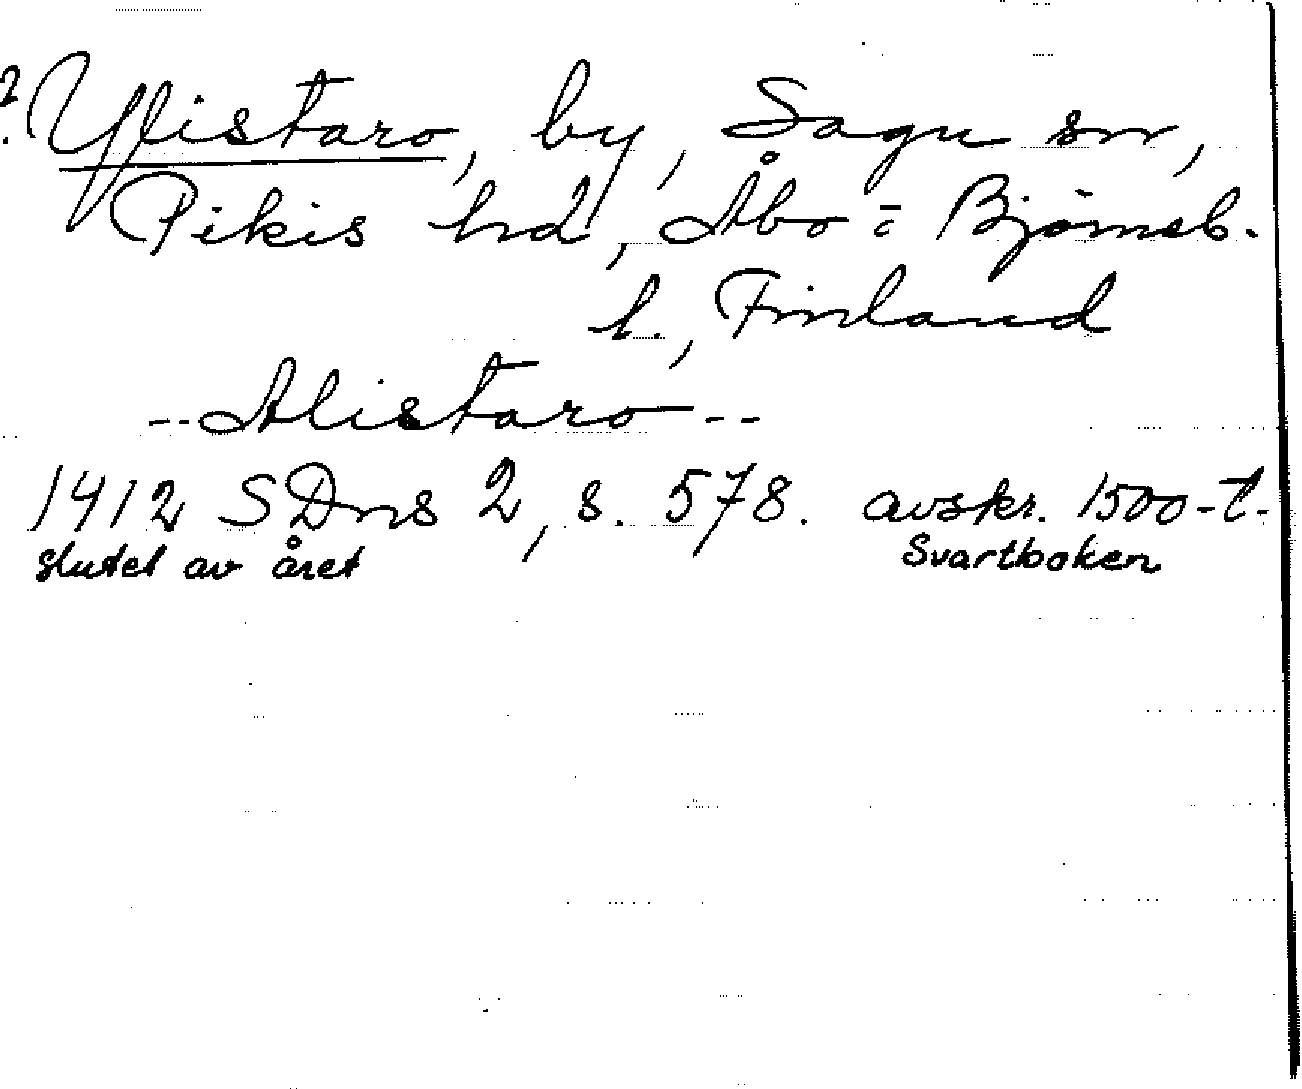 ? Ylistaro, by, Sagu sn,
Pikis hd, Åbo = Björneb.
l., Finland
-- Alistaro --
1412 SDns 2, s. 578. avskr. 1500-t.
slutet av året Svartboken